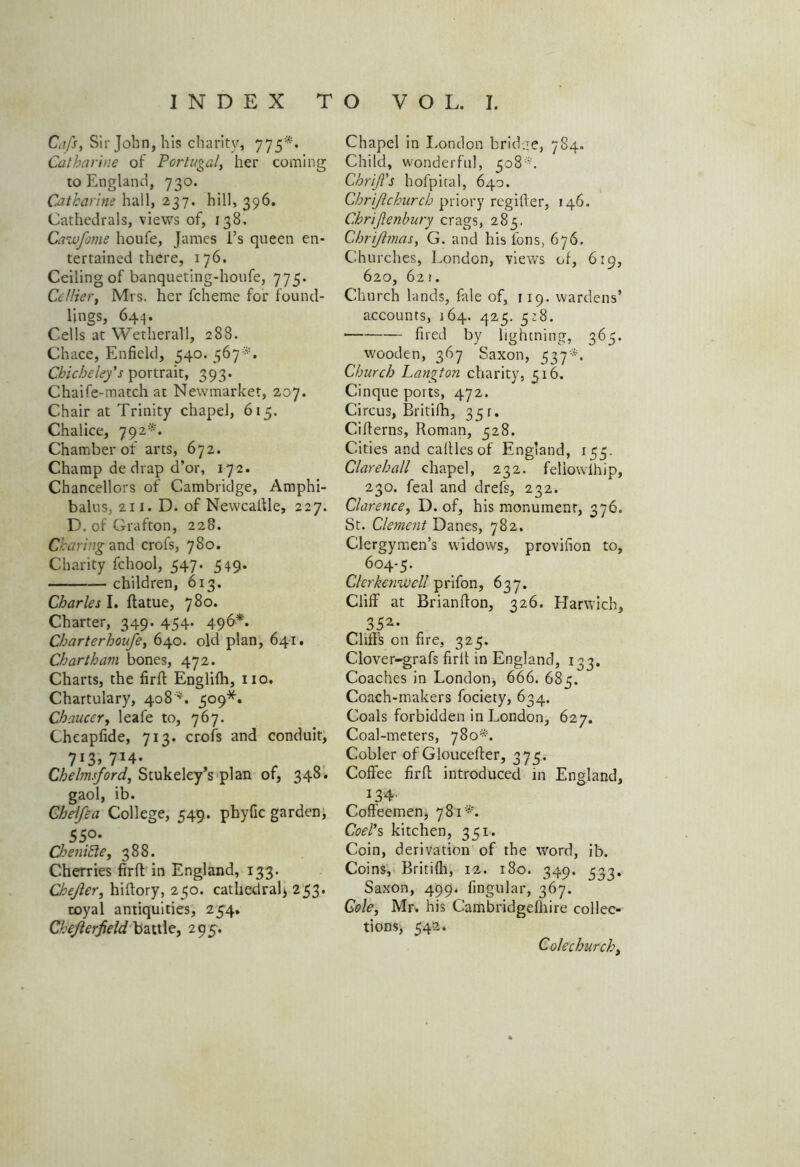 INDEX TO VOL. I.
Caſs, Sir John, his charity, 775*.
Catharine of Portugal, her coming
to England, 730.
Catharine hall, 237. hill, 396.
Cathedrals, views of, 138.
Cawſome houſe, James I's queen en-
tertained there, 176.
Ceiling of banqueting-houſe, 775.
Cellier, Mrs. her ſcheme for found-
lings, 644.
Cells at Wetherall, 288.
Chace, Enfield, 540. 567*.
Chicheley's portrait, 393.
Chaiſe-match at Newmarket, 207.
Chair at Trinity chapel, 615.
Chalice, 792*.
Chamber of arts, 672.
Champ de drap d'or, 172.
Chancellors of Cambridge, Amphi-
balus, 211. D. of Newcaſtle, 227.
D. of Grafton, 228.
Charing and croſs, 780.
Charity ſchool, 547. 549.
——— children, 613.
Charles I. ſtatue, 780.
Charter, 349. 454. 496*.
Charterhouſe, 640. old plan, 641.
Chartham bones, 472.
Charts, the firſt Engliſh, 110.
Chartulary, 408*. 509*.
Chaucer, leaſe to, 767.
Cheapſide, 713. croſs and conduit,
713, 714.
Chelmsford, Stukeley's plan of, 348.
gaol, ib.
Chelſea College, 549. phyſic garden,
550.
Cheniƈle, 388.
Cherries firſt in England, 133.
Cheſter, hiſtory, 250. cathedral, 253.
royal antiquities, 254.
Cheſterfield battle, 295.
Chapel in London bridge, 784.
Child, wonderful, 508*.
Chriſt's hoſpital, 640.
Chriſtchurch priory regiſter, 146.
Chriſtenbury crags, 285.
Chriſtmas, G. and his ſons, 676.
Churches, London, views of, 619,
620, 621.
Church lands, ſale of, 119. wardens'
accounts, 164. 425. 528.
——— fired by lightning, 365.
wooden, 367 Saxon, 537*.
Church Langton charity, 516.
Cinque ports, 472.
Circus, Britiſh, 351.
Ciſterns, Roman, 528.
Cities and caſtles of England, 155.
Clarehall chapel, 232. fellowſhip,
230. ſeal and dreſs, 232.
Clarence, D. of, his monument, 376.
St. Clement Danes, 782.
Clergymen's widows, proviſion to,
604-5.
Clerkenwell priſon, 637.
Cliff at Brianſton, 326. Harwich,
352.
Cliffs on fire, 325.
Clover-graſs firſt in England, 133.
Coaches in London, 666. 685.
Coach-makers ſociety, 634.
Coals forbidden in London, 627.
Coal-meters, 780*.
Cobler of Glouceſter, 375.
Coffee firſt introduced in England,
134.
Coffeemen, 781*.
Coel's kitchen, 351.
Coin, derivation of the word, ib.
Coins, Britiſh, 12. 180. 349. 533.
Saxon, 499. ſingular, 367.
Cole, Mr. his Cambridgeſhire collec-
tions, 542.
Colechurch,